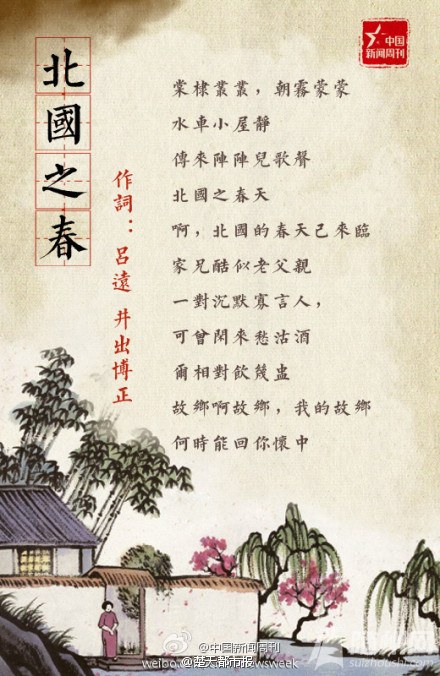 北國之春
作詞：呂遠 井出博正
中国
新闻周刊
棠棣叢叢，朝霧蒙蒙
水車小屋靜
傳來陣陣兒歌聲
北國之春天
啊，北國的春天已來臨
家兄酷似老父親
一對沉默寡言人，
可曾閑來愁沽酒
爾相對飲幾盅
故鄉啊故鄉，我的故鄉
何時能回你懷中
@中国新闻周刊
@楚天都市报
suizhoushi.com